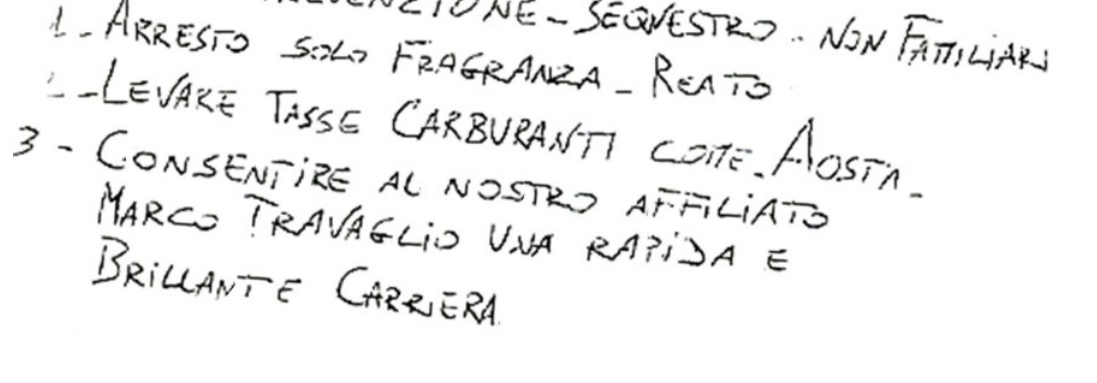 SEQUESTRO - NON FAMILIARI
1 - ARRESTO SOLO FRAGRANZA - REATO
- LEVARE TASSE CARBURANTI COME - AOSTA -
3 - CONSENTIRE AL NOSTRO AFFILIATO
MARCO TRAVAGLIO UNA RAPIDA E
BRILLANTE CARRIERA